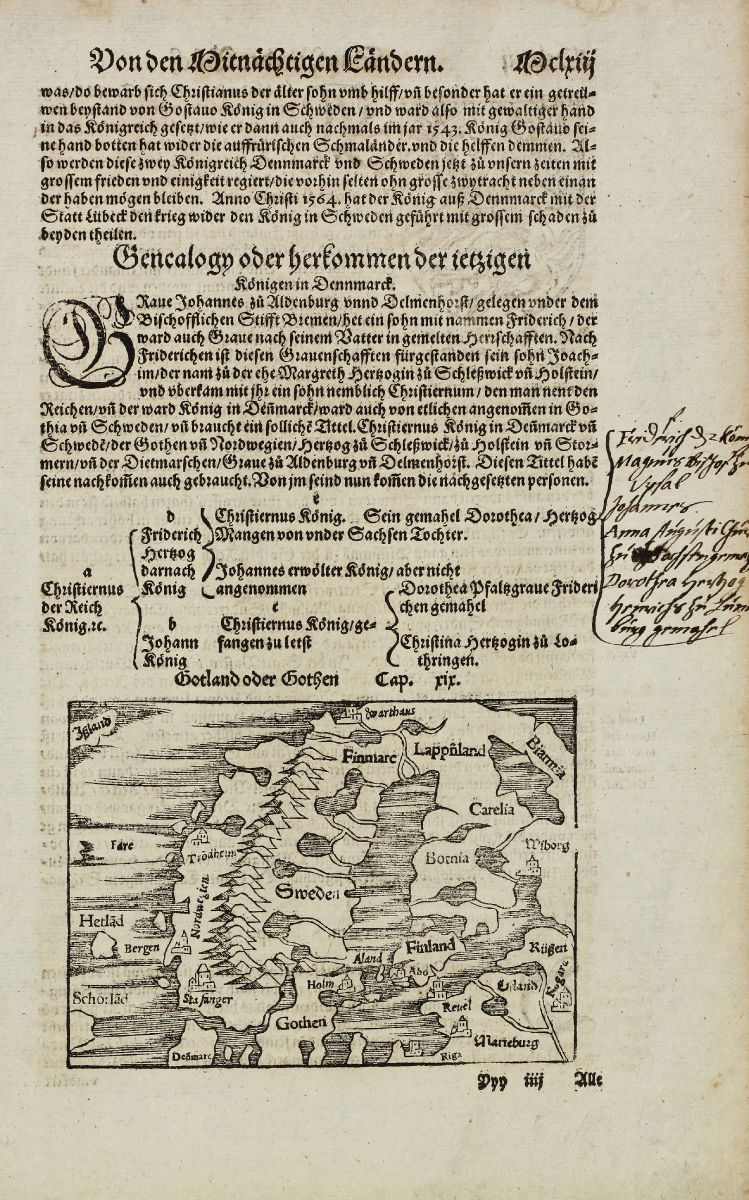 Von den Mitnächtigen Ländern. Mclxiij
was/do bewarb sich Christianus der älter sohn vmb hilff/vñ besonder hat er ein getreü-
wen beystand von Gostauo König in Schweden/vnd ward also mit gewaltiger hand
in das Königreich gesetzt/wie er dann auch nachmals im jar 1543. König Gostauo sei-
ne hand botten hat wider die auffrürischen Schmaländer.vnd die helffen demmen. Al-
so werden diese zwey Königreich Dennmarck vnd Schweden jetzt zů vnsern zeiten mit
grossem frieden vnd einigkeit regiert/die vorhin selten ohn grosse zwytracht neben einan
der haben mögen bleiben. Anno Christi 1564. hat der König auß Dennmarck mit der
Statt Lübeck den krieg wider den König in Schweden geführt mit grossem schaden zů
beyden theilen.
Genealogy oder herkommen der ietzigen
Königen in Dennmarck.
GRaue Johannes zů Aldenburg vnnd Delmenhorst/gelegen vnder dem
Bischofflichen Stifft Bremen/het ein sohn mit nammen Friderich/der
ward auch Graue nach seinem Vatter in gemelten Herrschafften. Nach
Friderichen ist diesen Grauenschafften fürgestanden sein sohn Joach-
im/der nam zů der ehe Margreth Hertzogin zů Schleßwick vñ Holstein/
vnd vberkam mit jhr ein sohn nemblich Christiernum/den man nent den
Reichen/vñ der ward König in Deñmarck/ward auch von etlichen angenom̃en in Go-
thia vñ Schweden/vñ braucht ein sollichẽ Tittel.Christiernus König in Deñmarck vñ
Schwedẽ/der Gothen vñ Nordwegien/Hertzog zů Schleßwick/zů Holstein vñ Stor-
mern/vñ der Dietmarschen/Graue zů Aldenburg vñ Delmenhorst. Diesen Tittel habẽ
seine nachkom̃en auch gebraucht. Von jm seind nun kom̃en die nachgesetzten personen.
a
Christiernus
der Reich
König.ꝛc.
d
Friderich
Hertzog
darnach
König
b
Johann
König
e
Christiernus König. Sein gemahel Dorothea/Hertzog
Mangen von vnder Sachsen Tochter.
Johannes erwölter König/aber nicht
angenommen
c
Christiernus König/ge-
fangen zu letst
Dorothea Pfaltzgraue Frideri
chen gemahel
Christina Hertzogin zů Lo-
thringen.
f
Friderich d. 2 Köni
Magnus Bischof zu
Johannes
Anna Augusti Chur
zu Sachssen gema
Dorothea Hertzog
Heinrichs zu Lüne
burg gemahel
Gotland oder Gothen Cap. xix.
Jßland
Swarthaus
Finmarc
Lappñland
Biarmia
Carelia
Fare
Trõdheim
Botnia
Wiborg
Sweden
Nordwegien
Hetlãd
Bergen
Finland
Rüßen
Aland
Abo
Holm
Schotlãd
Stafanger
Reuel
Gothen
Marieburg
Deñmarc
Riga
Pyy iiij Alle